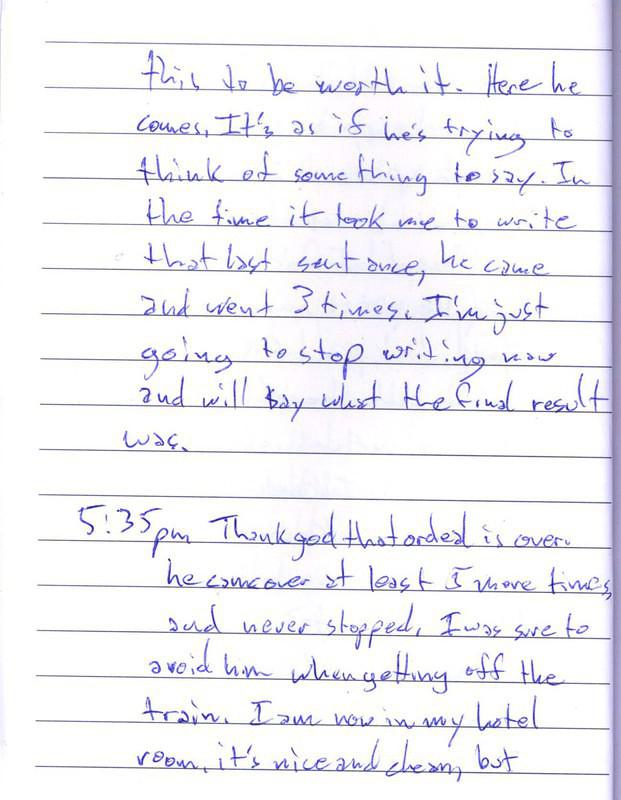 this to be worth it. Here he
comes, It's as if he's trying to
think of something to say. In
the time it took me to write
that last sentance, he came
and went 3 times. I'm just
going to stop writing now
and will say what the final result
was.
5:35pm Thank god that ordeal is over.
he came over at least 5 more times,
and never stopped, I was sure to
avoid him when getting off the
train. I am now in my hotel
room, it's nice and clean, but